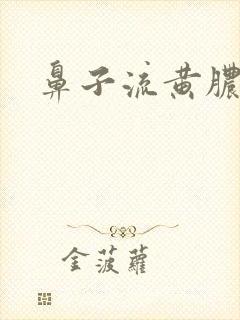 鼻子流黄膿
金菠蘿